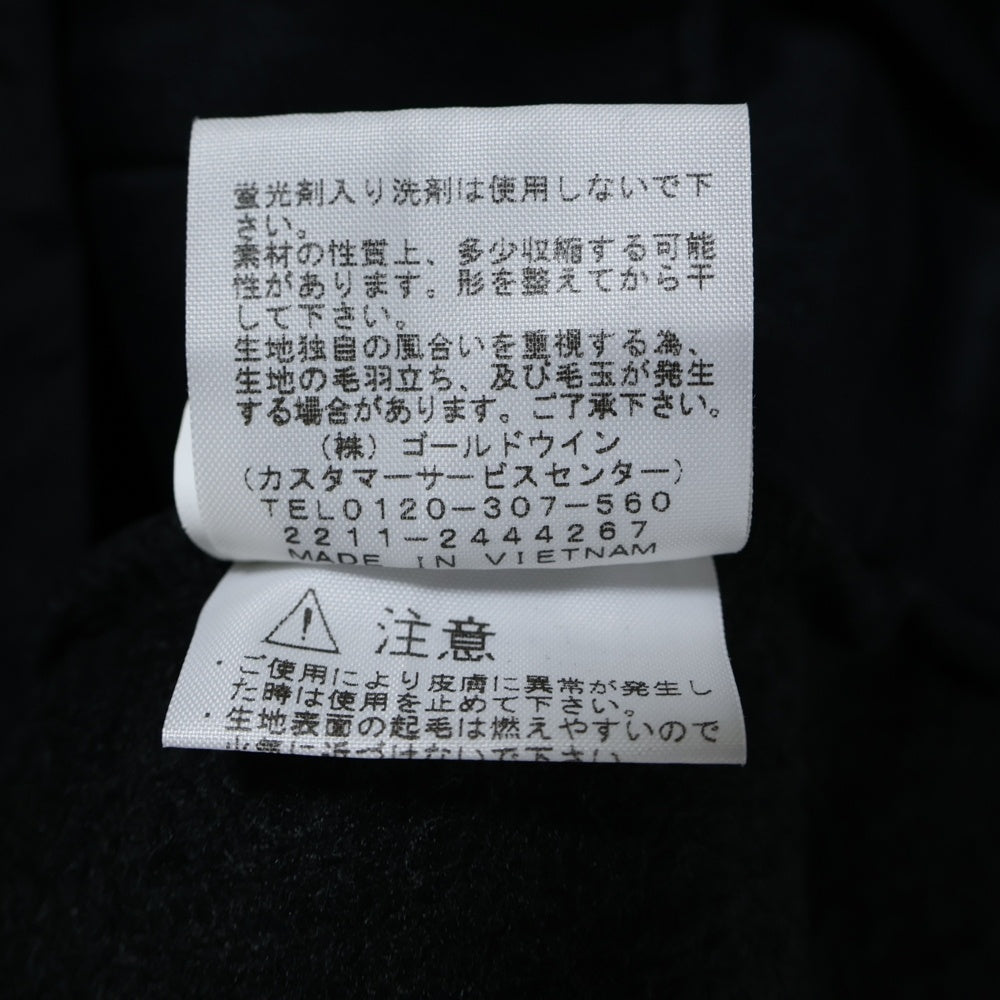 蛍光剤入り洗剤は使用しないで下
さい。
素材の性質上、多少収縮する可能
性があります。形を整えてから干
して下さい。
生地独自の風合いを重視する為、
生地の毛羽立ち、及び毛玉が発生
する場合があります。ご了承下さい。
(株)ゴールドウイン
(カスタマーサービスセンター)
TEL0120-307-560
2211-2444267
MADE IN VIETNAM
注意
・ご使用により皮膚に異常が発生し
た時は使用を止めて下さい。
・生地表面の起毛は燃えやすいので
火気に近づけないで下さい